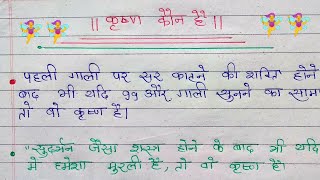 || कृष्ण कौन है ||
• पहली गाली पर सर काटने की शक्ति होने
बाद भी यदि 99 और गाली सुनने का साम
तो वो कृष्ण हैं।
• "सुदर्शन जैसा शस्त्र होने के बाद भी यदि
मे हमेशा मुरली है, तो वो कृष्ण हैं।